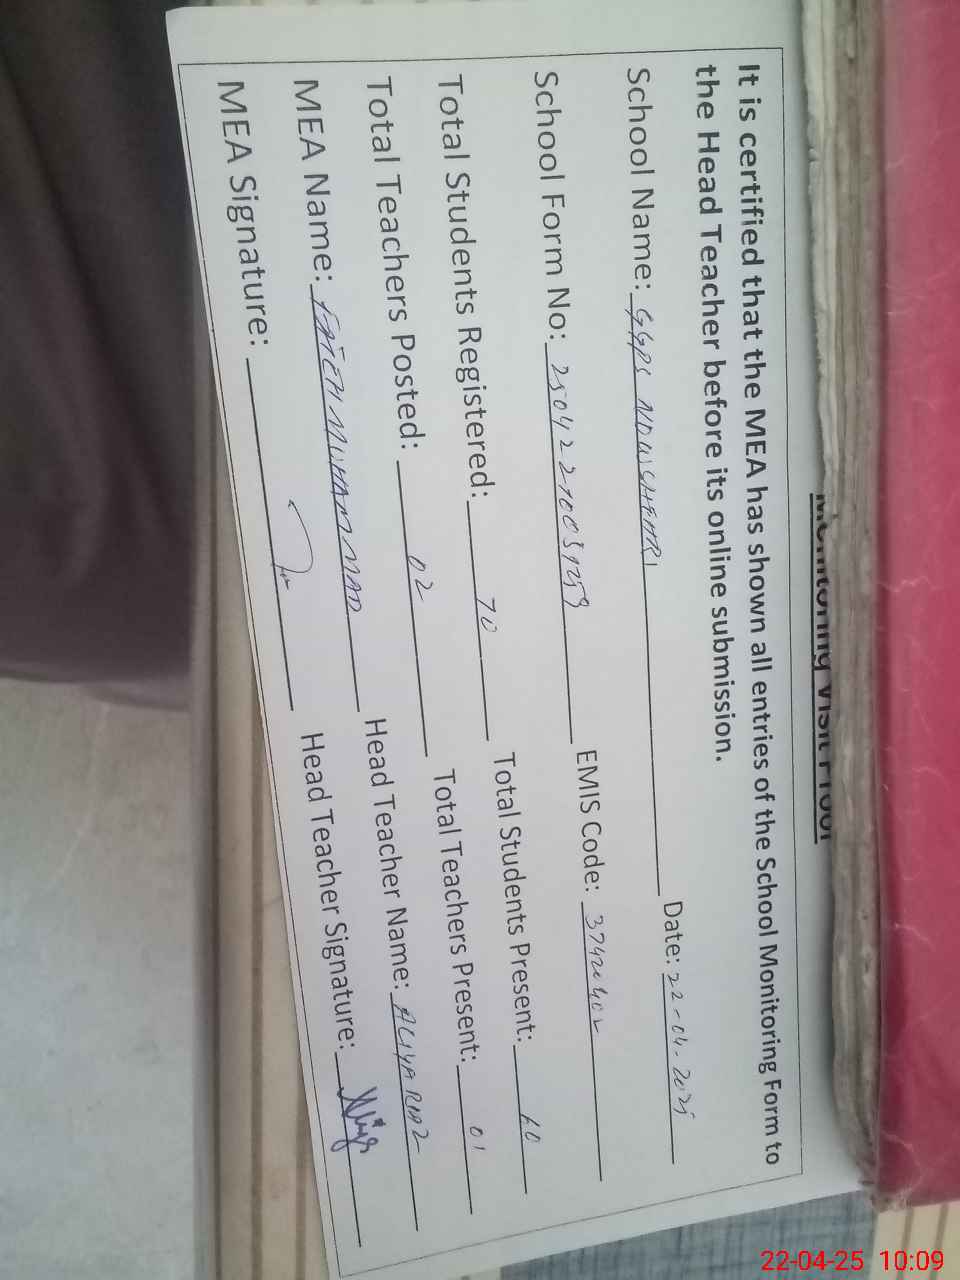 Monitoring Visit Proof
It is certified that the MEA has shown all entries of the School Monitoring Form to
the Head Teacher before its online submission.
School Name: GGPS Date: 22-04-2025
School Form No: EMIS Code:
Total Students Registered: 70 Total Students Present: 60
Total Teachers Posted: 02 Total Teachers Present: 01
MEA Name: FATEH MUHAMMAD Head Teacher Name: ALIYA RIAZ
MEA Signature: Head Teacher Signature:
22-04-25 10:09